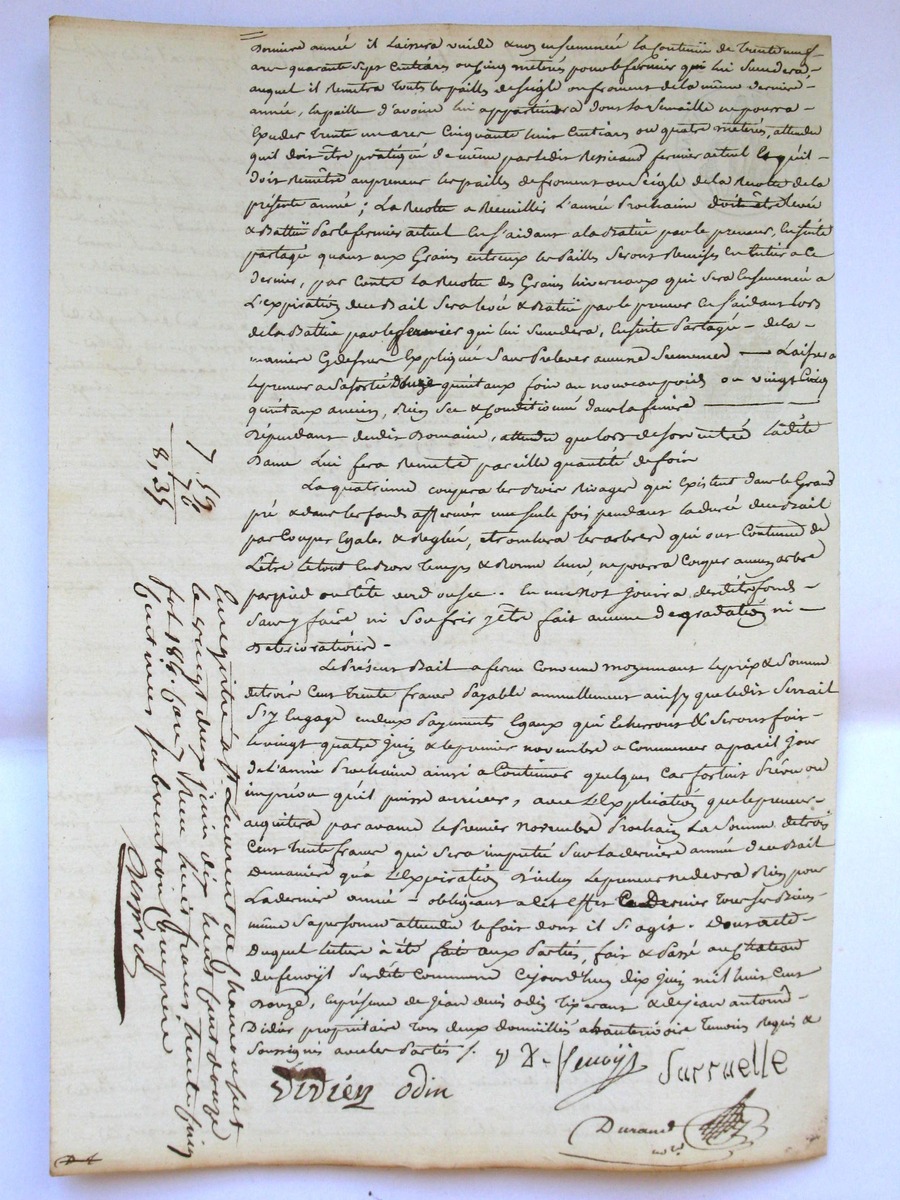 Derniere année il Laissera vuide & non ensemencée la Contenüe de Trente neuf
ares quarante Sept Centiares ou Cinq métrés pour le fermier qui lui Succedera,
auquel il Remetra Touts les pailles de seigle ou froment de la même derniere
année, la paille d'avoine lui appartiendra dont la Semaille ne pourra
Exceder Trente un ares Cinquante huit Centiares ou quatre métrés, attendu
quil doit être pratiqué de même par ledit fermier actuel Et quil
doit Remêtre au preneur les pailles de froment ou Seigle de la Recolte de la
présente année ; La Recolte a Recueillir L'année Prochaine doit être levée
& Battüe Par le fermier actuel En s'aidant a la Battüe par le preneur, Ensuite
partagé quant aux Grains entreux les Pailles Seront Remises en Entier a ce
Dernier, par Contre la Recolte des Grains hivernaux qui Sera Ensemencée a
L'expiration du Bail Sera levée & Battüe par le preneur En s'aidant lors
de la Battüe par le fermier qui lui Succedera, Ensuite Partagée de la
maniere Cydessus Expliquée Sans Prelever aucune Semence — Laissera
le preneur a Sa Sortie Douze quintaux foin au nouveau poids ou vingt Cinq
quintaux anciens, Bien Sec & Conditionné dans la feniere
Dépendant dudit Domaine, attendu que lors de son entrée Ladite
Dame Lui fera Remetre pareille quantité de foin
La quatrieme coupera les Bois Rivages qui Existent dans le Grand
pré & dans les fonds affermés une seule fois pendant la durée du Bail
par Coupes Egales & Reglées, les arbres qui ont Coutume de
L'être Le tout En Bon Temps & Bonne Lune, ne pourra Couper aucun arbre
par pied ou tête verd ou sec. En un Mot jouira desdits fonds
Sans y faire ni Souffrir y être fait aucune degradation ni
Deterioration.
Le Présent Bail a ferme Convenu moyennant Le prix & Somme
de trois Cent Trente francs Payable annuellement ainsy que ledit
S'y Engage en deux Payments Egaux qui Echerront & Seront faits
le vingt quatre Juin & le premier novembre a Commencer a pareil jour
de L'année Prochaine ainsi a Continuer quelques Cas fortuit Prévu ou
imprévu qu'il puisse arriver, avec L'Explication que le preneur
aquitera par avance le Premier novembre Prochain La Somme de trois
Cent Trente francs qui Sera imputée Sur la derniere année du Bail
De maniere qu'a L'Expiration D'icelui Le preneur ne devra Rien pour
La derniere année — obligeant a cet Effet Ce Dernier Tous ses Biens
même Sa personne attendu le fait dont il S'agit. Dont acte
Duquel lecture a été fait aux Parties, fait & Passé au Chateau
du fenoyl Susdite Commune Cejourd'hui dix Juin mil huit Cent
Douze, En présence de Jean Odin & de Jean
Didier propriétaire Tous deux domiciliés a Temoins Requis &
Soussignés avec les Parties /.
fenoÿl Surruelle
Didier odin
Durand
7, 59
76
8, 35
Enregistré à St Laurent de Chamousset
le vingt deux juin dix huit Cent douze
fol 186 Reçu huit francs trente cinq
Centimes subvention Comprise